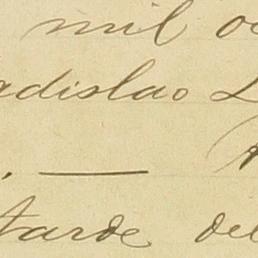 mil oc
adislao L
. —
tarde del